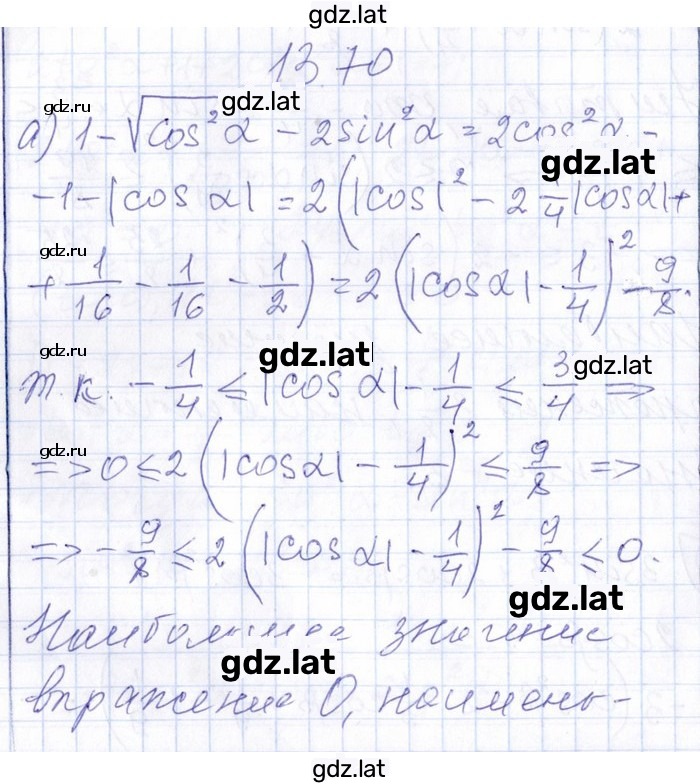 gdz.lat
13.70
gdz.lat
gdz.lat
а) 1 - √cos² α - 2 sin² α = 2 cos² α -
gdz.ru
gdz.lat
- 1 - |cos α| = 2 (|cos|² - 2 1/4 |cos α| +
gdz.ru
gdz.ru
+ 1/16 - 1/16 - 1/2) = 2 (|cos α| - 1/4)² - 9/8.
gdz.ru
gdz.lat
gdz.lat
т.к. - 1/4 ≤ |cos α| - 1/4 ≤ 3/4 =>
gdz.ru
=> 0 ≤ 2 (|cos α| - 1/4)² ≤ 9/8 =>
=> - 9/8 ≤ 2 (|cos α| - 1/4)² - 9/8 ≤ 0.
gdz.lat
Наибольшее значение
gdz.lat
выражение 0, наимень-
gdz.lat